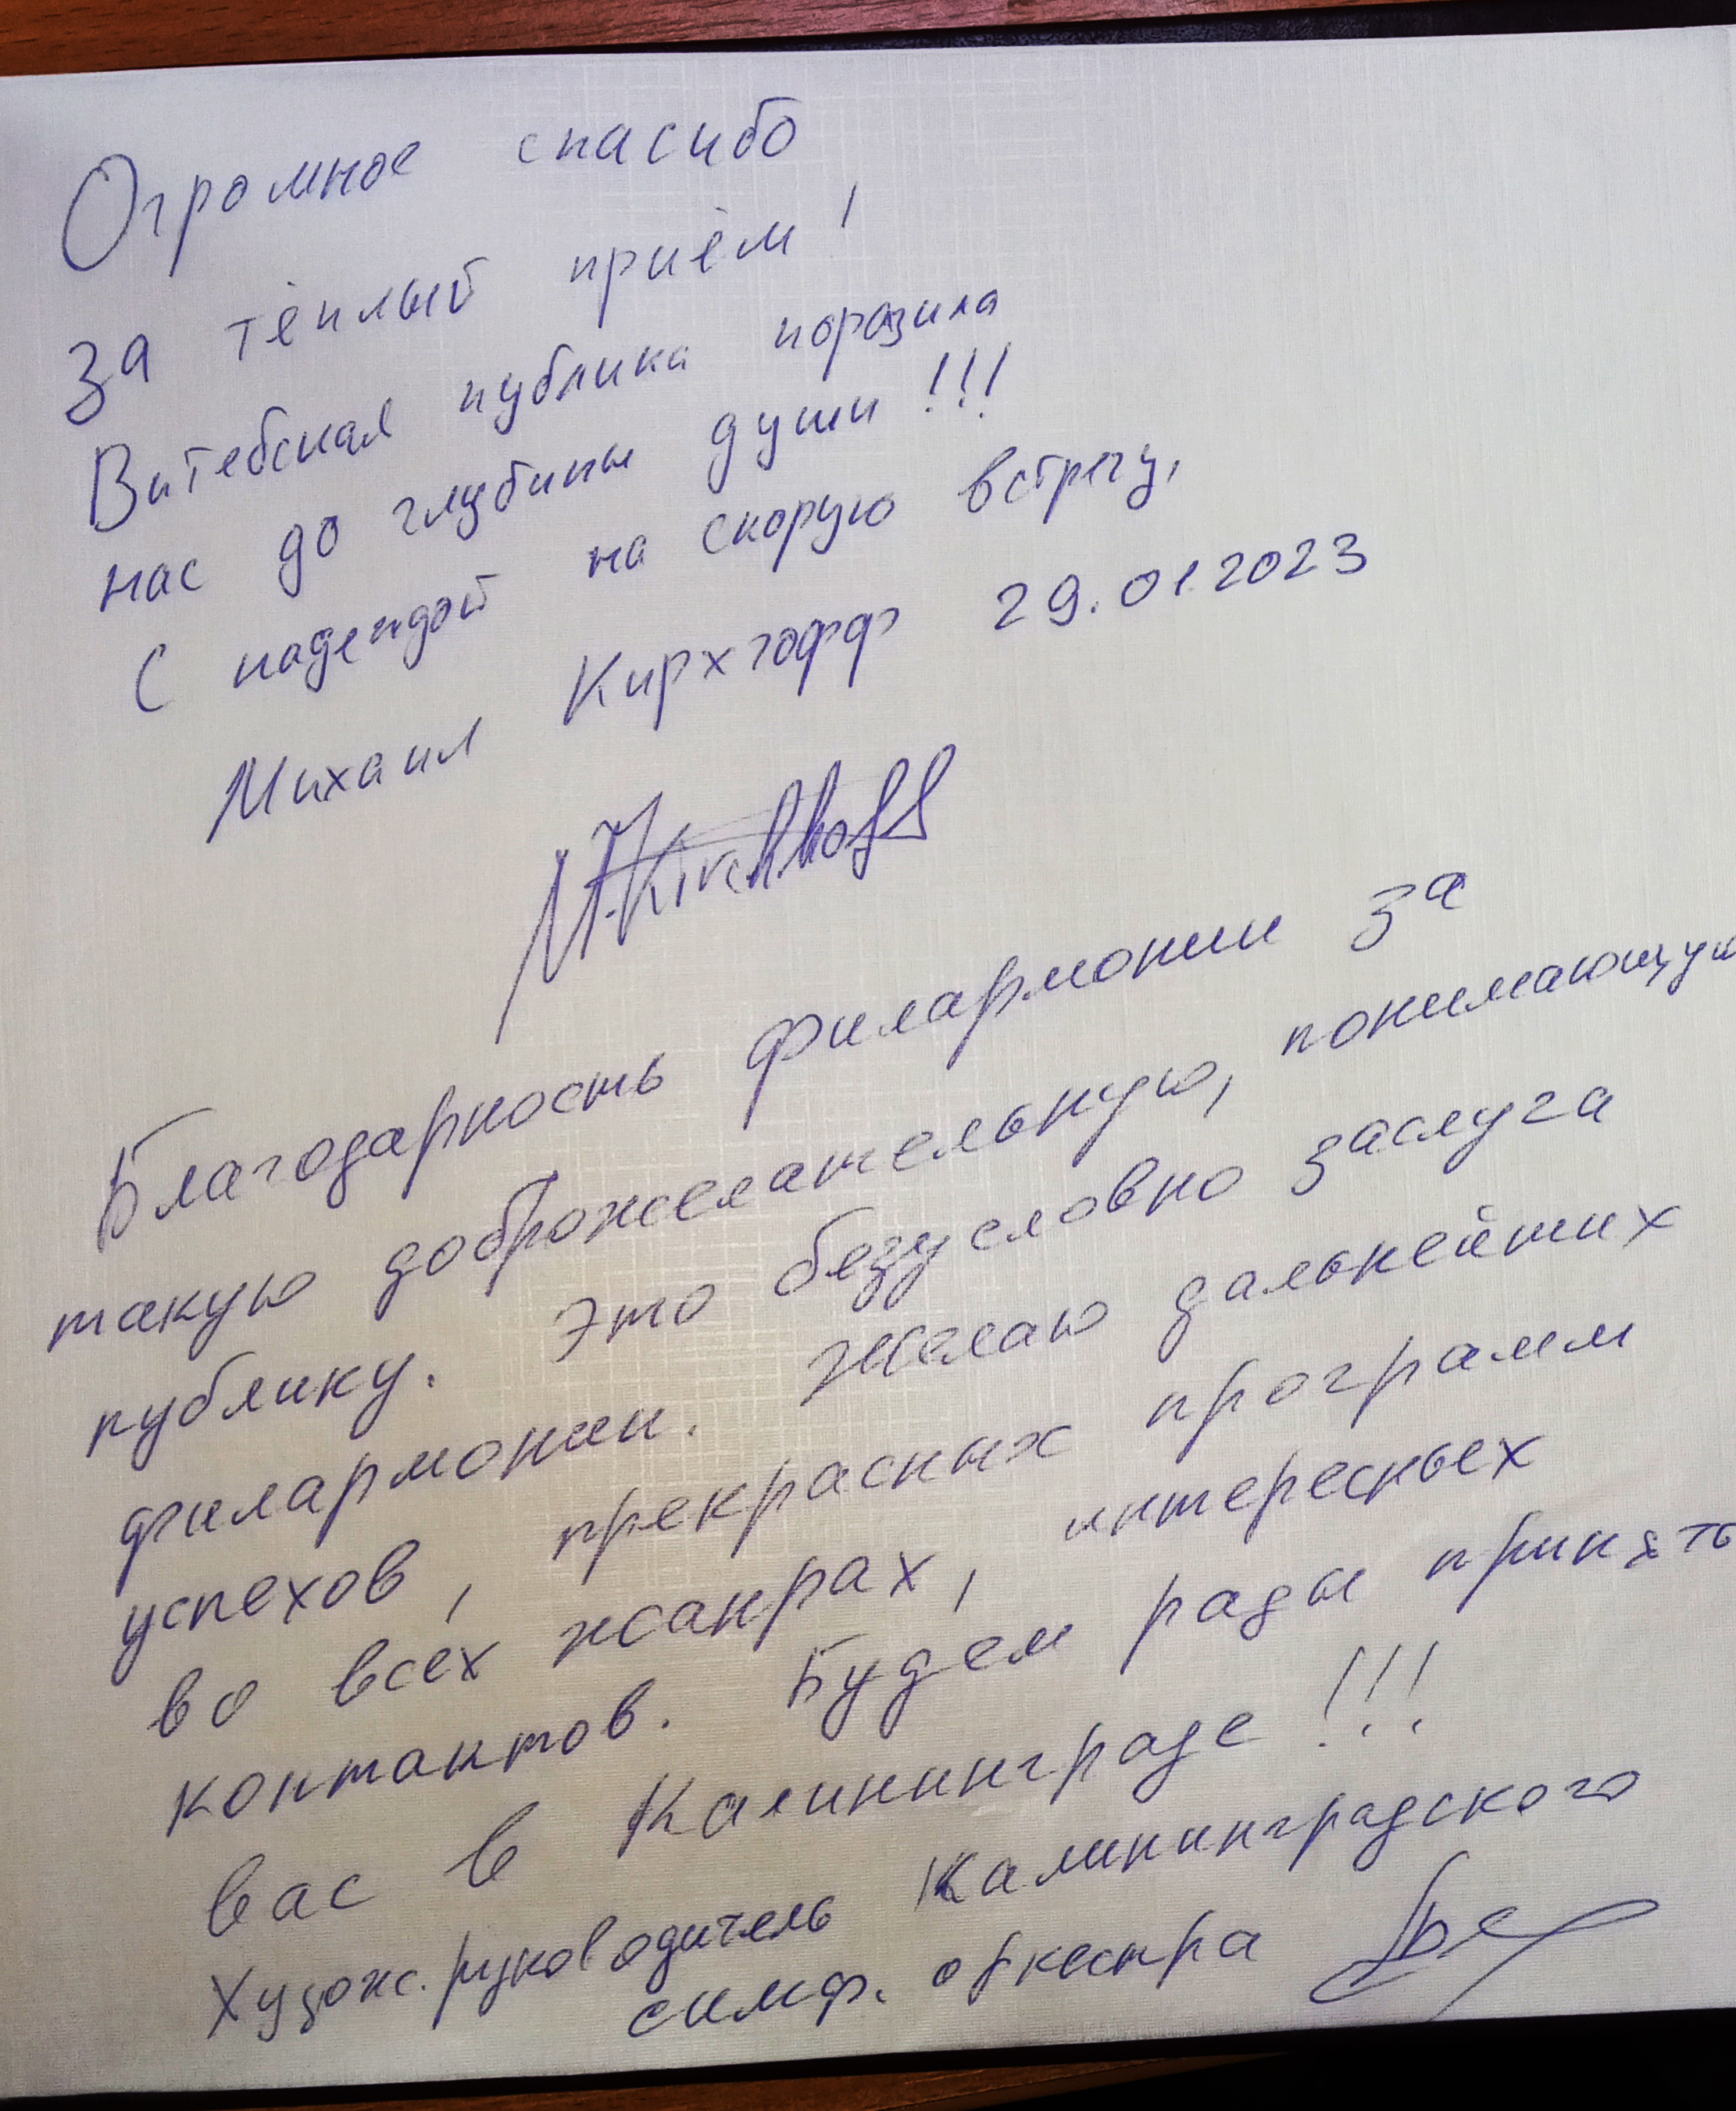 Огромное спасибо
за тёплый приём!
Витебская публика поразила
нас до глубины души!!!
С надеждой на скорую встречу,
Михаил Кирхгофф 29.01.2023
M.Kirchhoff
Благодарность филармонии за
такую доброжелательную, понимающую
публику. Это безусловно заслуга
филармонии. Желаю дальнейших
успехов, прекрасных программ
во всех жанрах, интересных
контактов. Будем рады принять
вас в Калининграде!!!
Худож. руководитель Калининградского
симф. оркестра